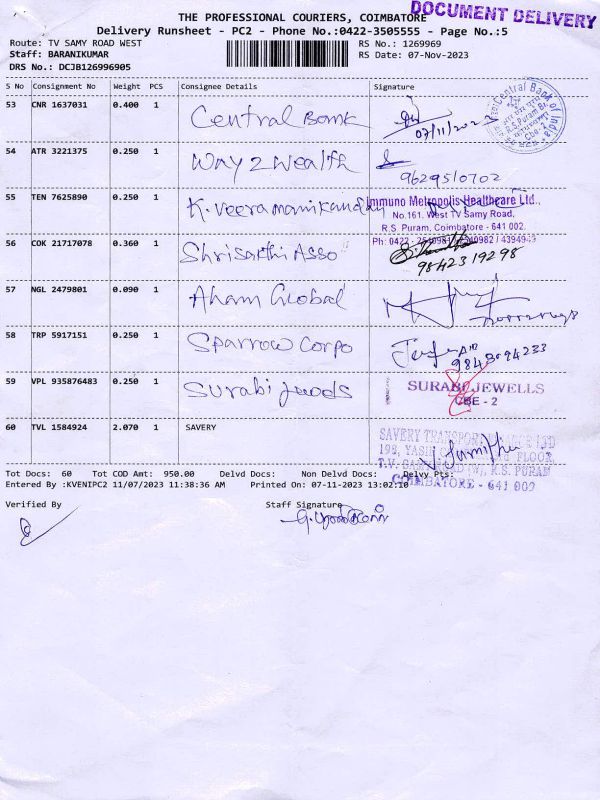 THE PROFESSIONAL COURIERS, COIMBATORE
DOCUMENT DELIVERY
Delivery Runsheet - PC2 - Phone No.:0422-3505555 - Page No.:5
Route: TV SAMY ROAD WEST RS No.: 1269969
Staff: BARANIKUMAR RS Date: 07-Nov-2023
DRS No.: DCJB126996905
S No Consignment No Weight PCS Consignee Details Signature
53 CNR 1637031 0.400 1 Central Bank
Central Bank of India
R.S. Puram Br.
54 ATR 3221375 0.250 1 Way 2 Wealth
9629510702
55 TEN 7625890 0.250 1 K. Veeramanikandan
Immuno Metropolis Healthcare Ltd.,
No.161, West TV Samy Road,
R.S. Puram, Coimbatore - 641 002.
Ph: 0422 - / 4394943
56 COK 21717078 0.360 1 Shrisakthi Asso
9842319298
57 NGL 2479801 0.090 1 Aham Global
58 TRP 5917151 0.250 1 Sparrow Corpo
9843094233
59 VPL 935876483 0.250 1 Surabi Jwods
SURABI JEWELLS
CBE - 2
60 TVL 1584924 2.070 1 SAVERY
COIMBATORE - 641 002
Tot Docs: 60 Tot COD Amt: 950.00 Delvd Docs: Non Delvd Docs: Delvy Pts:
Entered By :KVENIPC2 11/07/2023 11:38:36 AM Printed On: 07-11-2023 13:02:10
Verified By Staff Signature